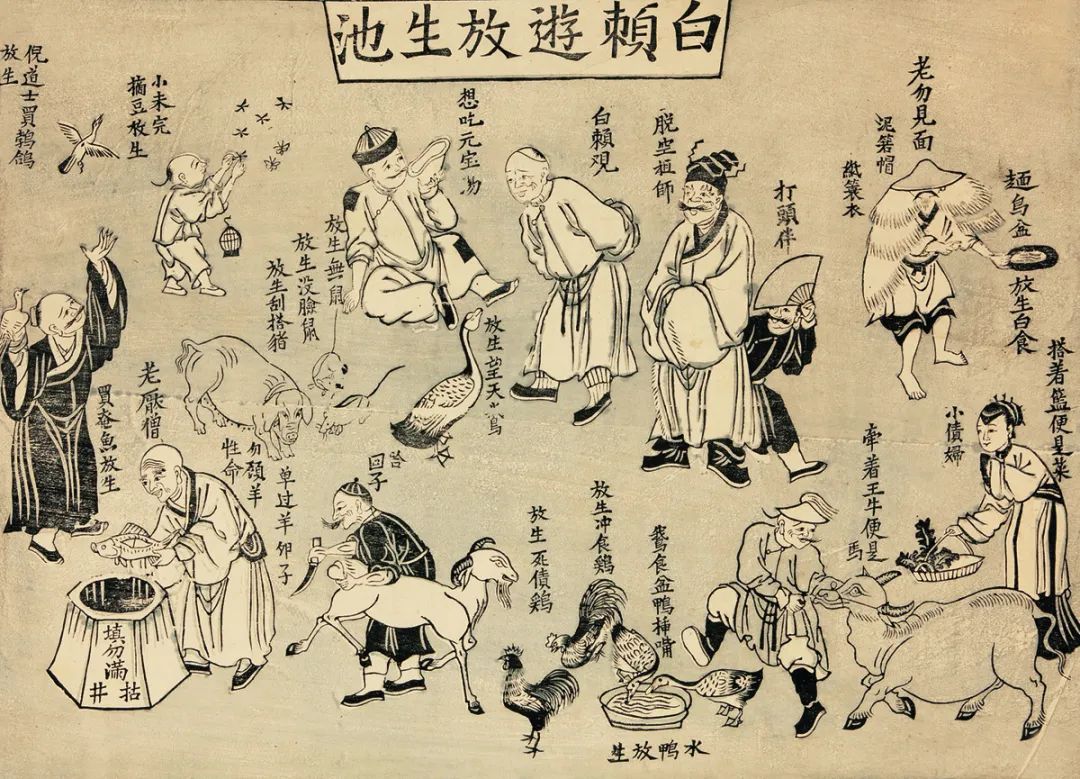 白賴遊放生池
老勿見面
泥箬帽
紙蓑衣
麵烏盆
放生白食
打頭伴
脱空祖師
白賴观
想吃元宝
小未完
摘豆放生
倪道士買鹁鸽
放生
放生無鼠
放生没臉鼠
放生刮搭猪
放生望天
搭着籃便是菜
小債婦
牽着王牛便是
馬
鵞食盆鴨揷嘴
放生冲食鷄
放生一死債鷄
水鴨放生
回子
单过羊卵子
勿顾羊
牲命
老厭僧
買鲞魚放生
填勿滿
枯井